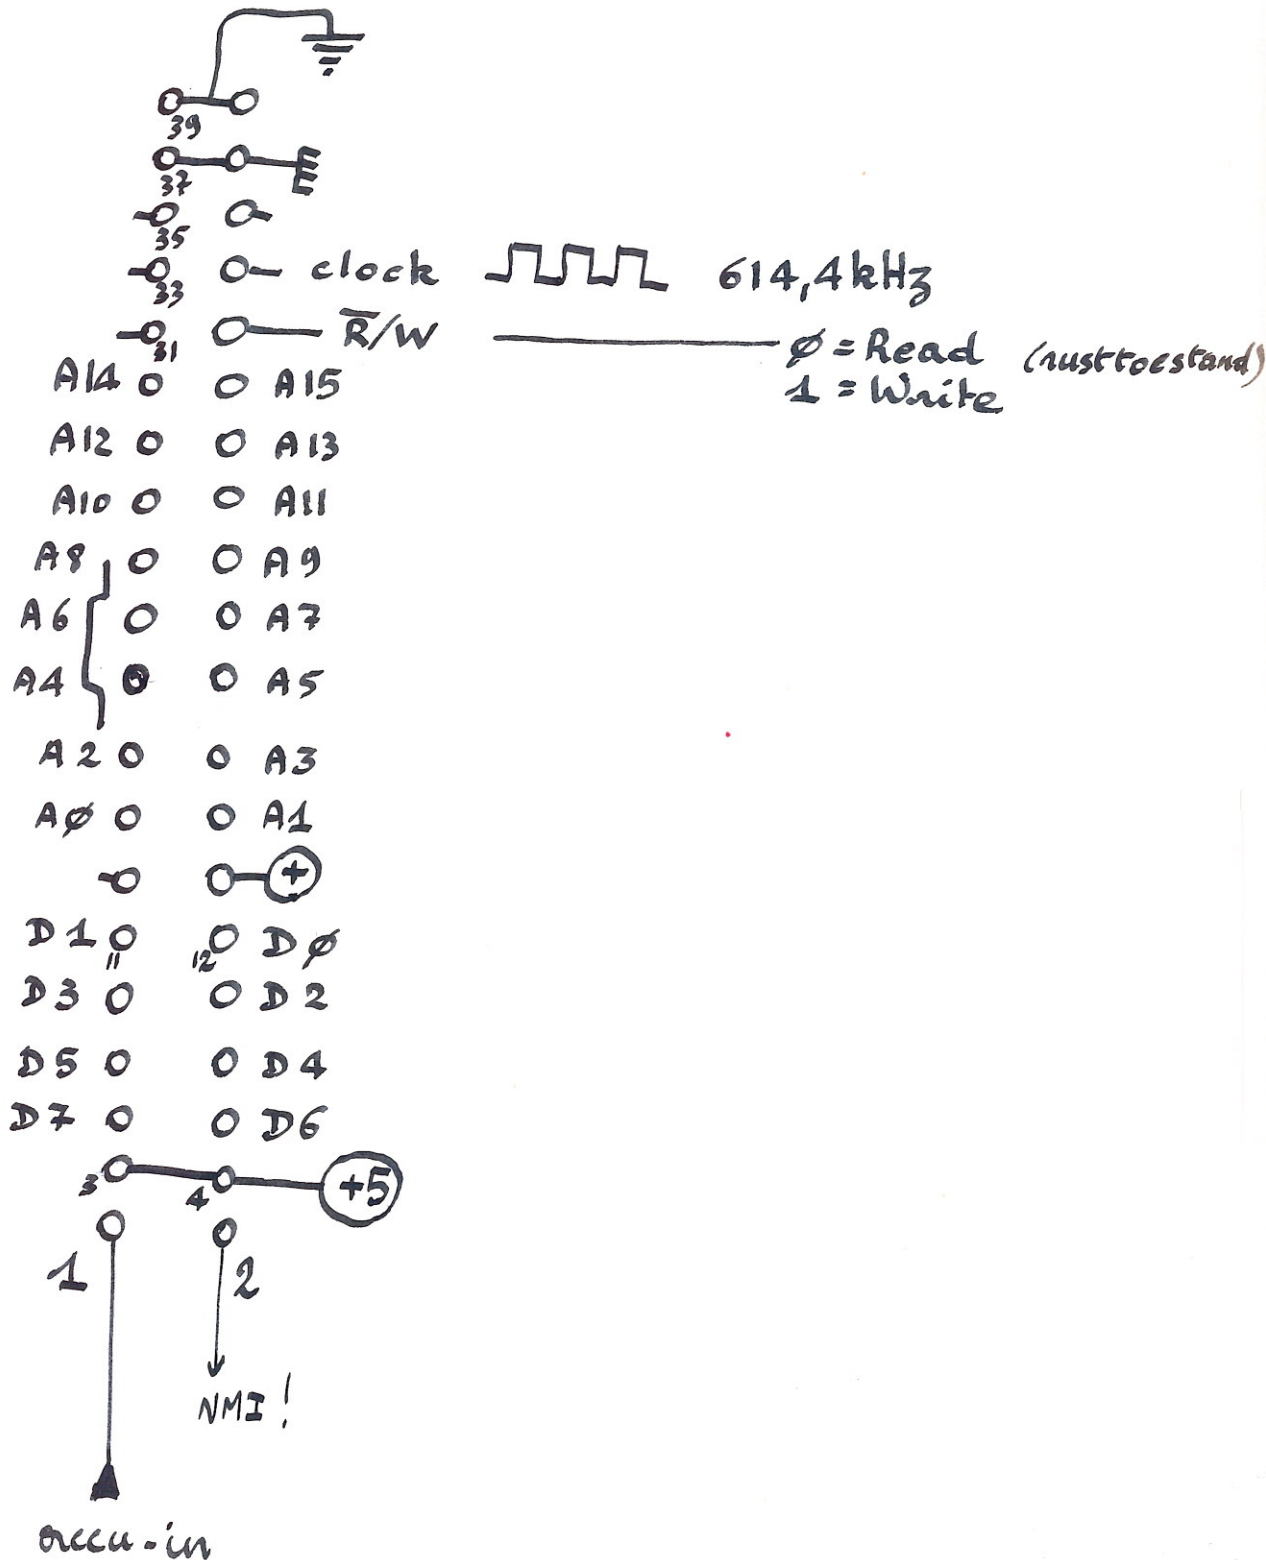 39
37 E
35
33 clock 614,4kHz
31 R̅/W ø = Read (rusttoestand)
1 = Write
A14 A15
A12 A13
A10 A11
A8 A9
A6 A7
A4 A5
A2 A3
Aø A1
+
D1 11 12 Dø
D3 D2
D5 D4
D7 D6
3 4 +5
1 2
NMI!
accu-in